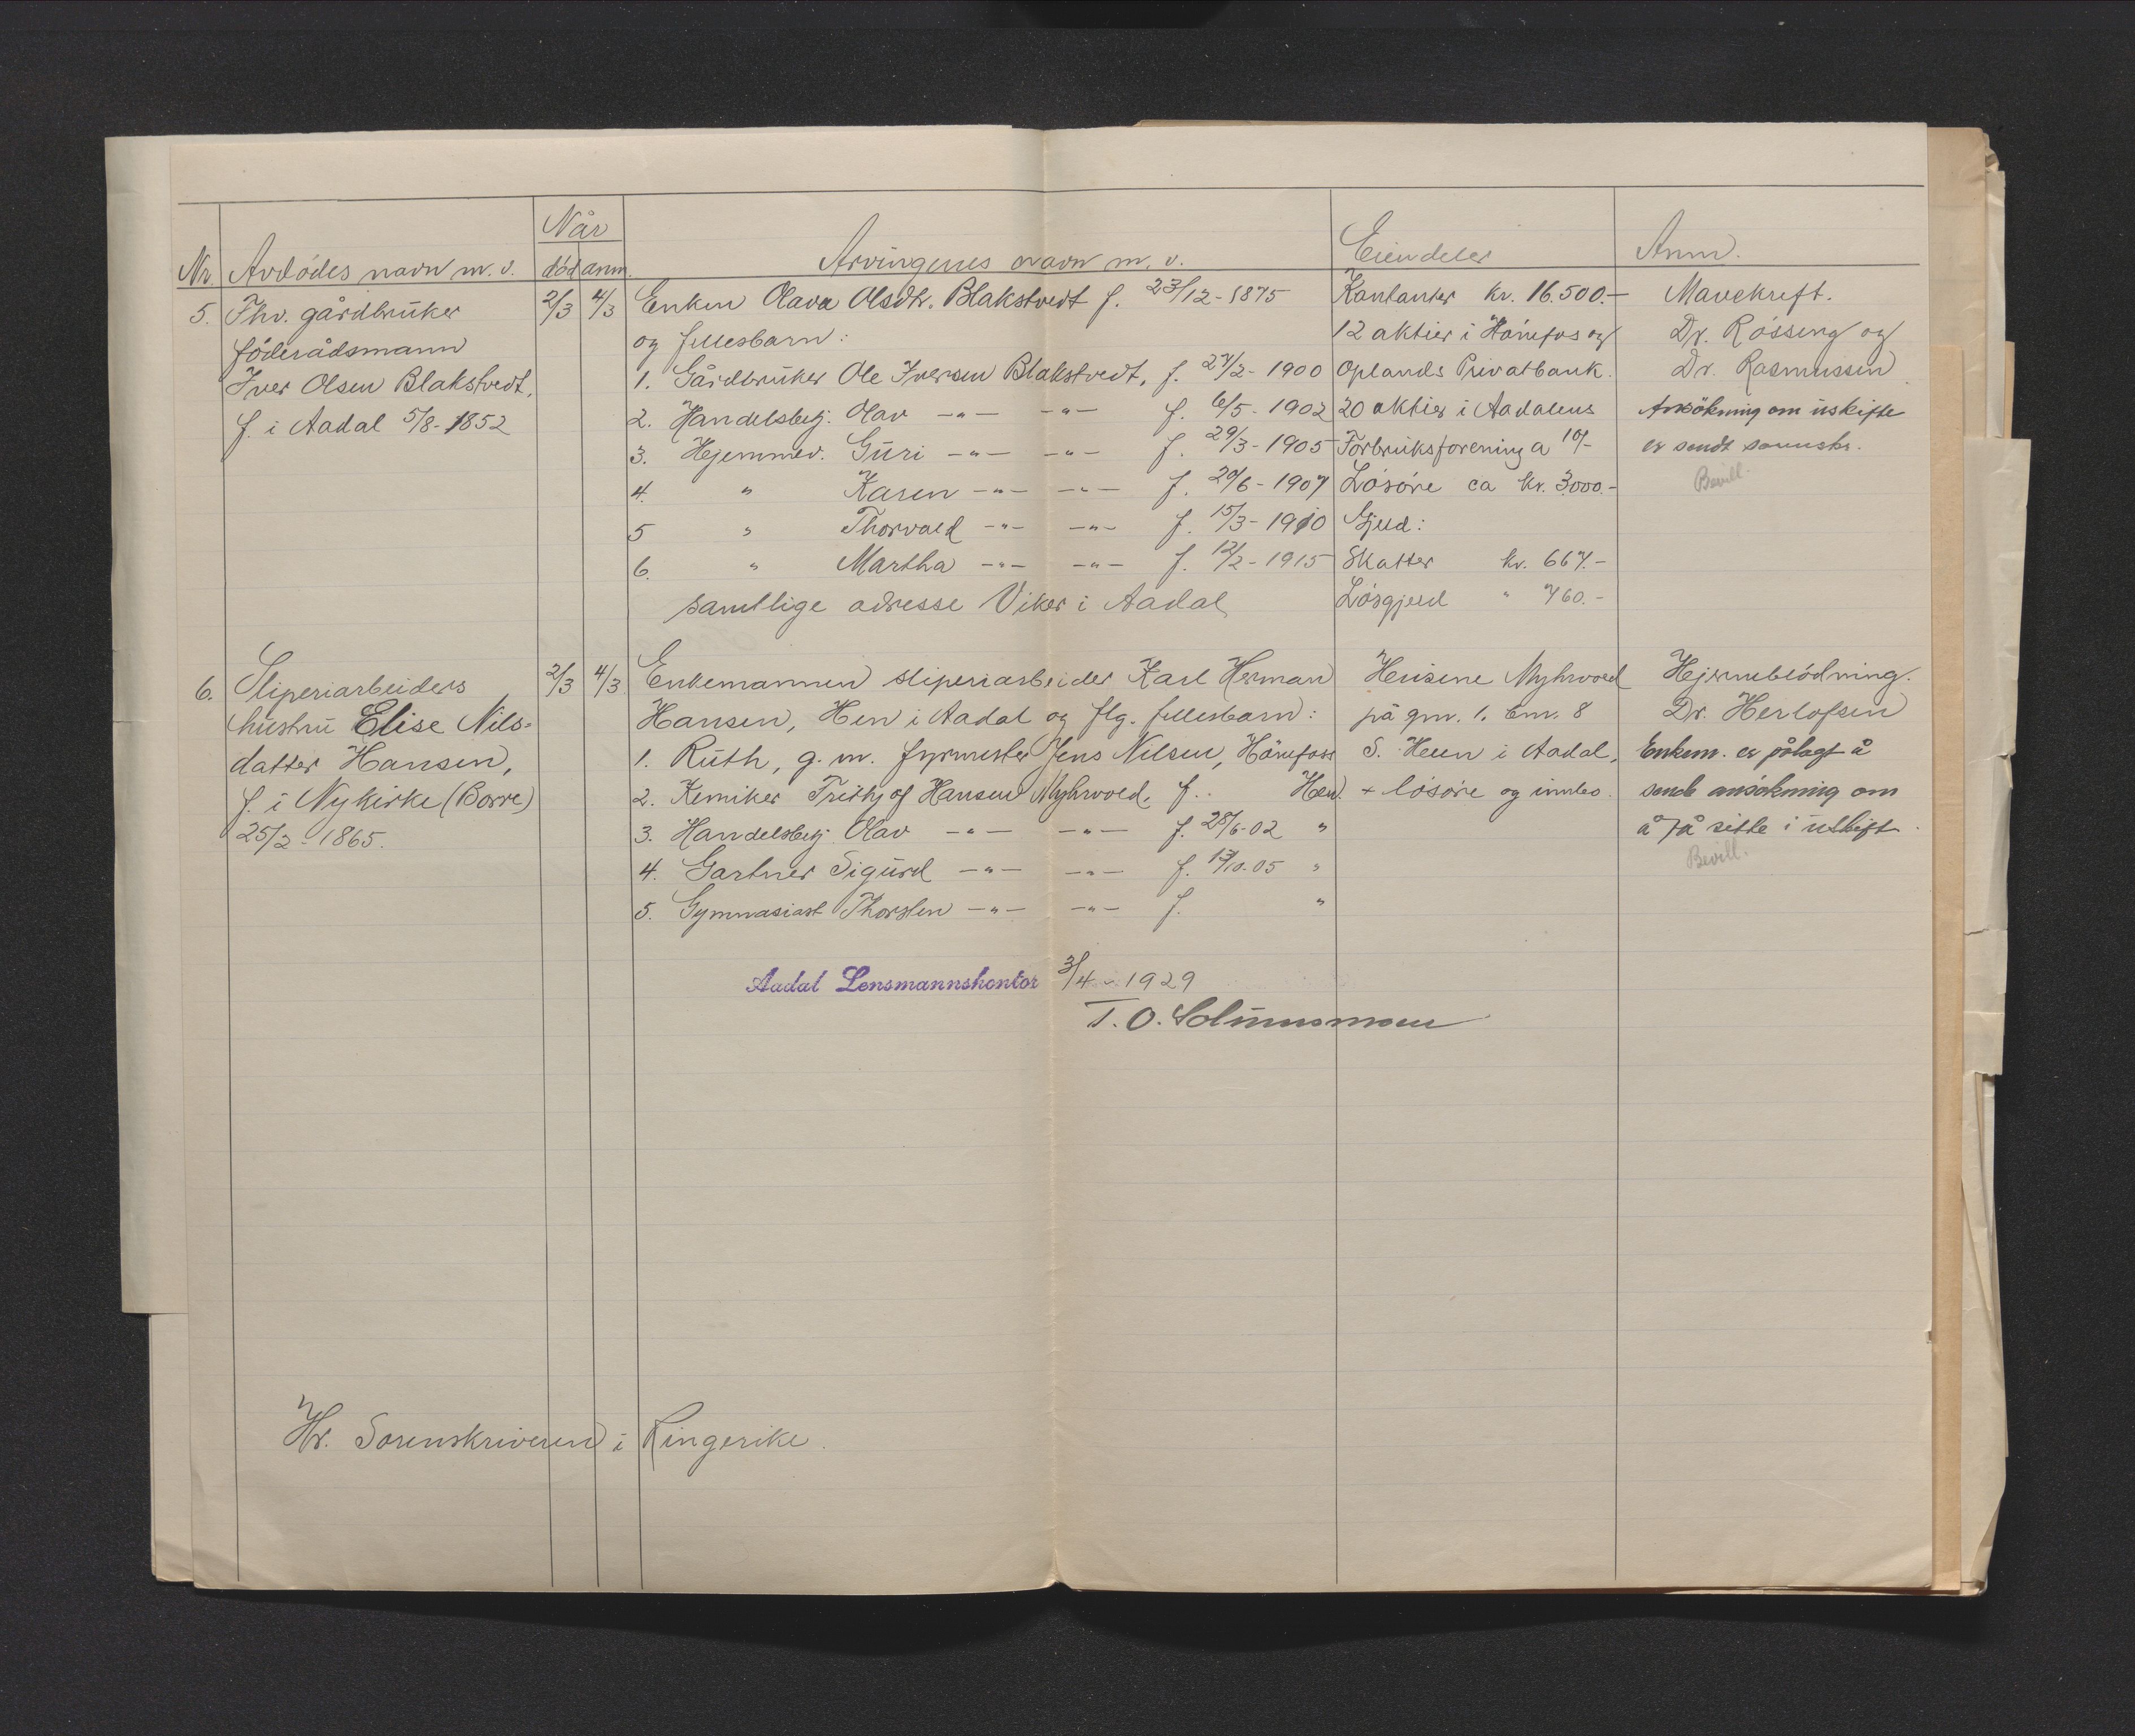 Når
Nr. Avdødes navn m. v. død anm. Arvingenes navn m. v. Eiendeler Anm.
5. Fhv. gårdbruker 2/3 4/3 Enken Olava Olsdtr. Blakstvedt f. 23/12-1875 Kontanter kr. 16.500.- Mavekreft.
föderådsmann og fellesbarn: 12 aktier i Hönefos og Dr. Rössing og
Iver Olsen Blakstvedt, 1. Gårdbruker Ole Iversen Blakstvedt, f. 27/2-1900 Oplands Privatbank. Dr. Rasmussen
f. i Aadal 5/8-1852 2. Handelsbetj. Olav -"- -"- f. 6/5-1902 20 aktier i Aadalens Ansökning om uskifte
3. Hjemmev. Guri -"- -"- f. 29/3-1905 Forbruksforening a 10/- er sendt sorenskr.
4. " Karen -"- -"- f. 20/6-1907 Lösöre ca kr. 3000.- Bevill.
5 " Thorvald -"- -"- f. 15/3-1910 Gjeld:
6. " Martha -"- -"- f. 12/2-1915 Skatter kr. 667.-
samtlige adresse Viker i Aadal Lösgjeld " 760.-
6. Sliperiarbeiders 2/3 4/3 Enkemannen sliperiarbeider Karl Herman Heusene Myhrvold Hjerneblödning.
hustru Elise Nils- Hansen, Hen i Aadal og flg. fellesbarn: på gnr. 1. bnr. 8 Dr. Herlofsen
datter Hansen, 1. Ruth, g. m. fyrmester Jens Nilsen, Hönefoss S. Heen i Aadal, Enkem. er pålagt å
f. i Nykirke (Borre) 2. Kemiker Frithjof Hansen Myhrvold, f.. Hen. + lösöre og innbo. sende ansökning om
25/2-1865. 3. Handelsbetj. Olav -"- -"- f. 28/6-02 " å få sitte i uskift.
4. Gartner Sigurd -"- -"- f. 13/10-05 " Bevill.
5. Gymnasiast Thorsten -"- -"- f. "
Aadal Lensmannskontor 3/4-1929
T. O. Solumsmoen
Hr. Sorenskriveren i Ringerike.